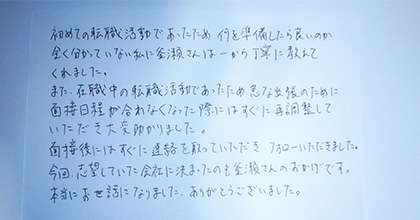 初めての転職活動であったため何を準備したら良いのか
全く分かっていない私に釜瀬さんは一から丁寧に教えて
くれました。
また、在職中の転職活動であったため急な出張のために
面接日程が合わなくなった際にはすぐに再調整して
いただき大変助かりました。
面接後にはすぐに連絡を取っていただき、フォローいただきました。
今回、志望していた会社に決まったのも釜瀬さんのおかげです。
本当にお世話になりました。ありがとうございました。